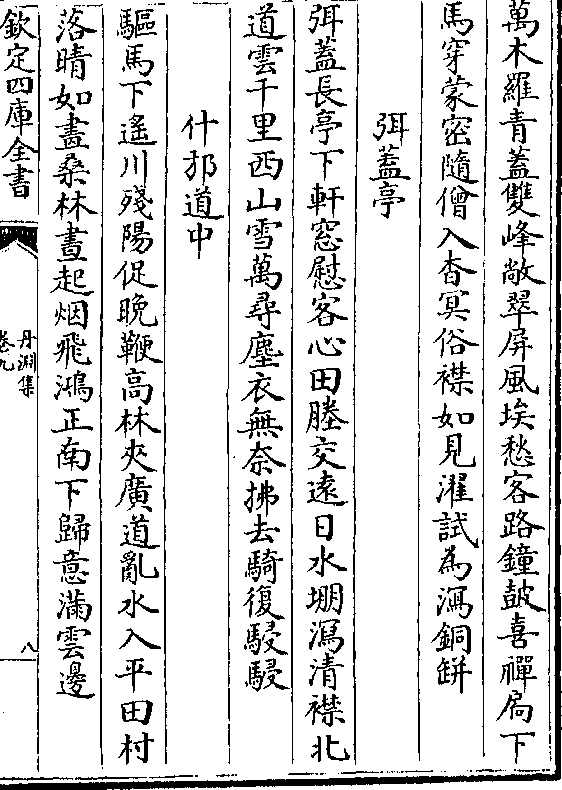 萬木羅青蓋雙峰敞翠屏風埃愁客路鐘皷喜禪扃下
馬穿蒙密隨僧入杳冥俗襟如見濯試為瀉銅缾
弭蓋亭
弭蓋長亭下軒窓慰客心田塍交逺日水堋瀉清襟北
道雲千里西山雪萬尋塵衣無奈拂去騎復駸駸
什邡道中
驅馬下遙川殘陽促晩鞭髙林夾廣道亂水入平田村
落晴如畫桑林晝起烟飛鴻正南下歸意滿雲邊
欽定四庫全書
丹淵集
卷九
八